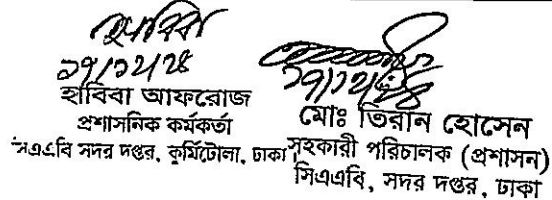 হাবিবা
১৭/১২/২৪
হাবিবা আফরোজ
প্রশাসনিক কর্মকর্তা
সিএএবি সদর দপ্তর, কুর্মিটোলা, ঢাকা
১৭/১২/২৪
মোঃ তিরান হোসেন
সহকারী পরিচালক (প্রশাসন)
সিএএবি, সদর দপ্তর, ঢাকা